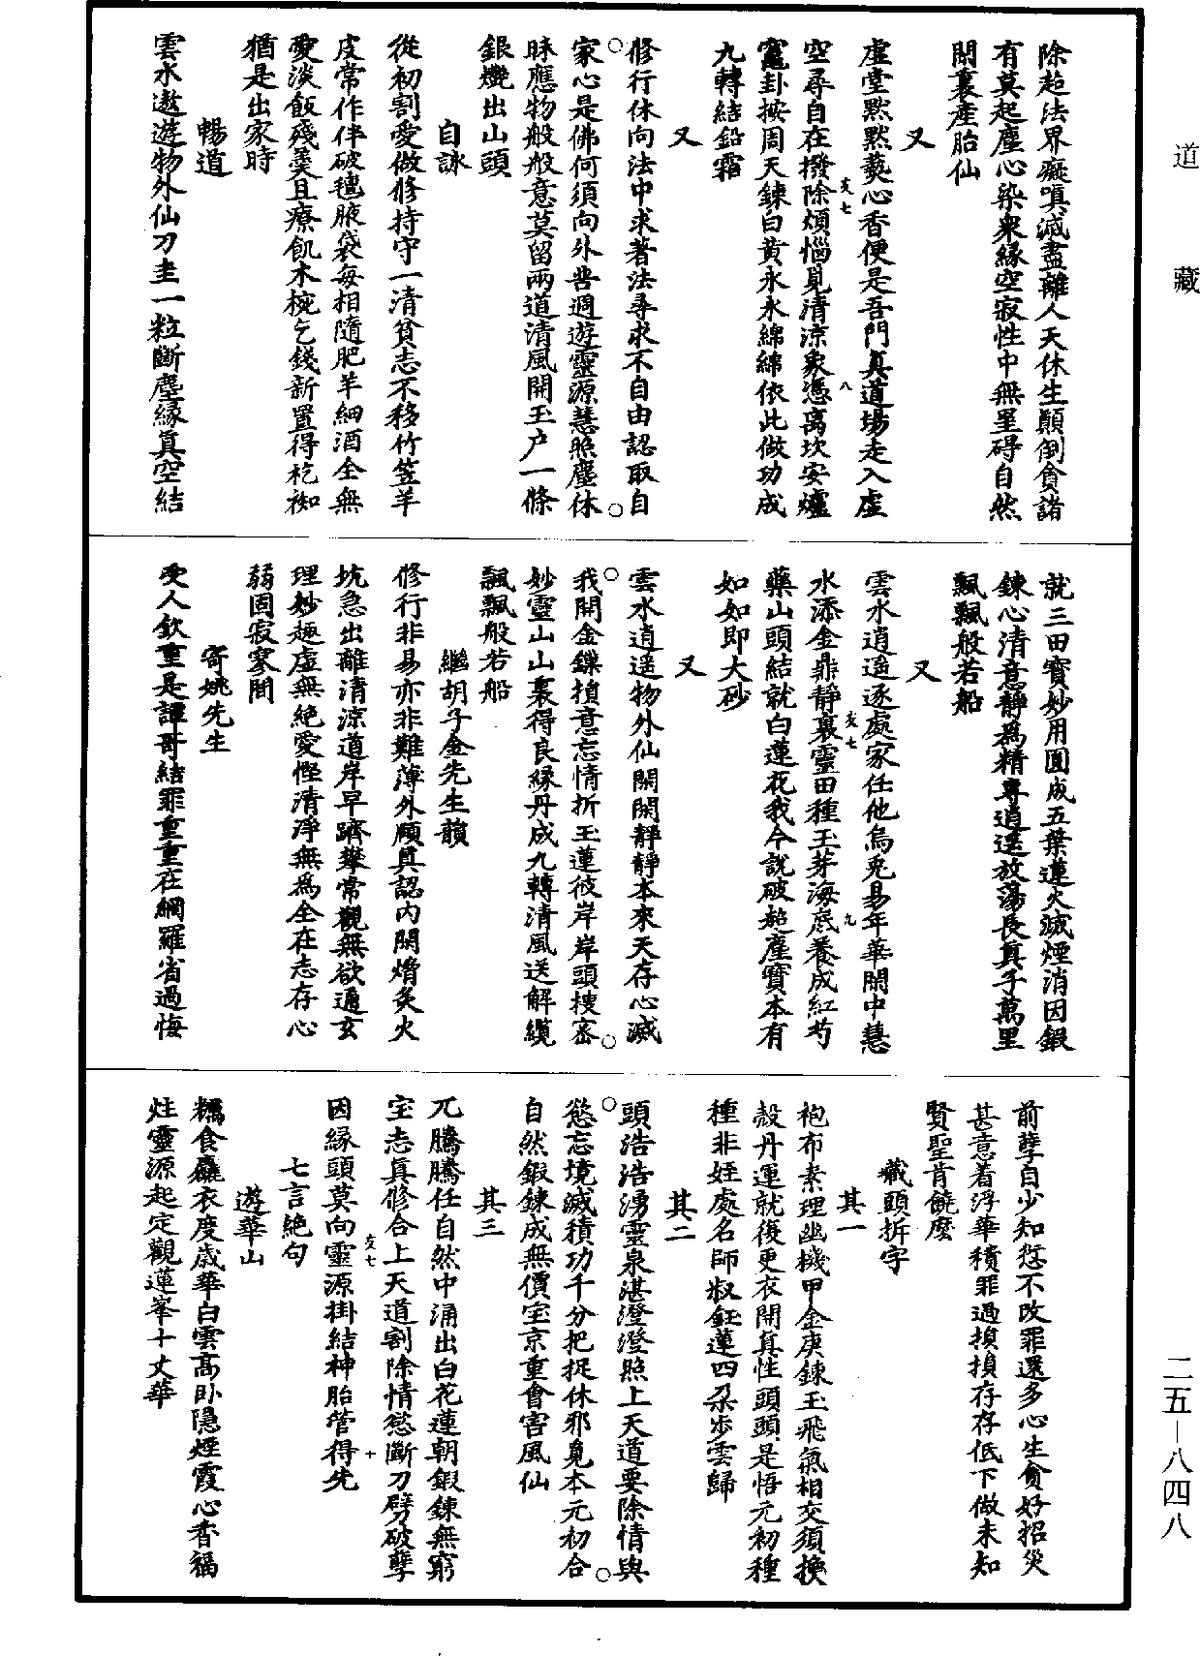 道藏
除趂法界癡嗔滅盡離人天休生顛倒貪諸
有莫起塵心染衆緣空寂性中無罣碍自然
閒裏產胎仙
又
虛堂默默爇心香便是吾門真道場走入虛
空尋自在撥除煩惱見清涼象憑离坎安爐
竈卦按周天鍊白黄永永綿綿依此做功成
九轉結鉛霜
又
修行休向法中求著法尋求不自由認取自
家心是佛何須向外苦週遊靈源慧照塵休
昧應物般般意莫留兩道清風開玉户一條
銀燭出山頭
自詠
從初割愛做修持守一清貧志不移竹笠羊
皮常作伴破氊腋袋每相隨肥羊細酒全無
愛淡飯殘羹且療飢木椀乞錢新置得衲𥿄
猶是出家時
暢道
雲水遨遊物外仙刀圭一粒斷塵緣真空結
就三田寶妙用圓成五葉蓮火滅煙消因鍜
鍊心清意靜為精專逍遥放蕩長真子萬里
飄飄般若船
又
雲水逍遥逐處家任他烏兎易年華閑中慧
水添金鼎靜裏靈田種玉芽海底養成紅芍
藥山頭結就白蓮花我今說破超塵寶本有
如如即大砂
又
雲水逍遥物外仙閑閑靜靜本來天存心滅
我開金鏁損意忘情折玉蓮彼岸岸頭搜密
妙靈山山裏得良緣丹成九轉清風送解纜
飄飄般若船
繼胡子金先生韻
修行非易亦非難薄外顧真認內閑熠炙火
坑急出離清涼道岸早躋攀常觀無欲通玄
理妙趣虛無絶愛慳清淨無為全在志存心
弱固寂寥間
寄姚先生
受人欽重是譚哥結罪重重在網羅省過悔
前孽自少知愆不改罪還多心生貪好招災
甚意着浮華積罪過損損存存低下做未知
賢聖肯饒麽
藏頭拆字
其一
袍布素理幽機甲金庚鍊玉飛氣相交須換
殻丹運就後更衣開真性頭頭是悟元初種
種非姪處名師叔鈺蓮四朵步雲歸
其二
頭浩浩湧靈泉湛澄澄照上天道要除情與
慾忘境滅積功千分把捉休邪覓本元初合
自然鍜鍊成無價宝京重會害風仙
其三
兀騰騰任自然中涌出白花蓮朝鍜鍊無窮
宝志真修合上天道割除情慾斷刀劈破孽
因緣頭莫向靈源掛結神胎管得先
七言絶句
遊華山
糲食麤衣度歲華白雲高卧隱煙霞心香福
炷靈源起定觀蓮峯十丈華
友七
八
友七
九
友七
十
二五—八四八